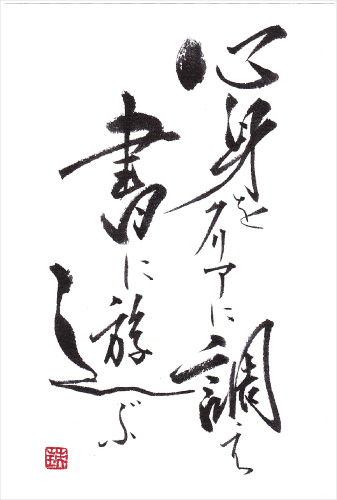 心身をクリアに調え
書に遊ぶ